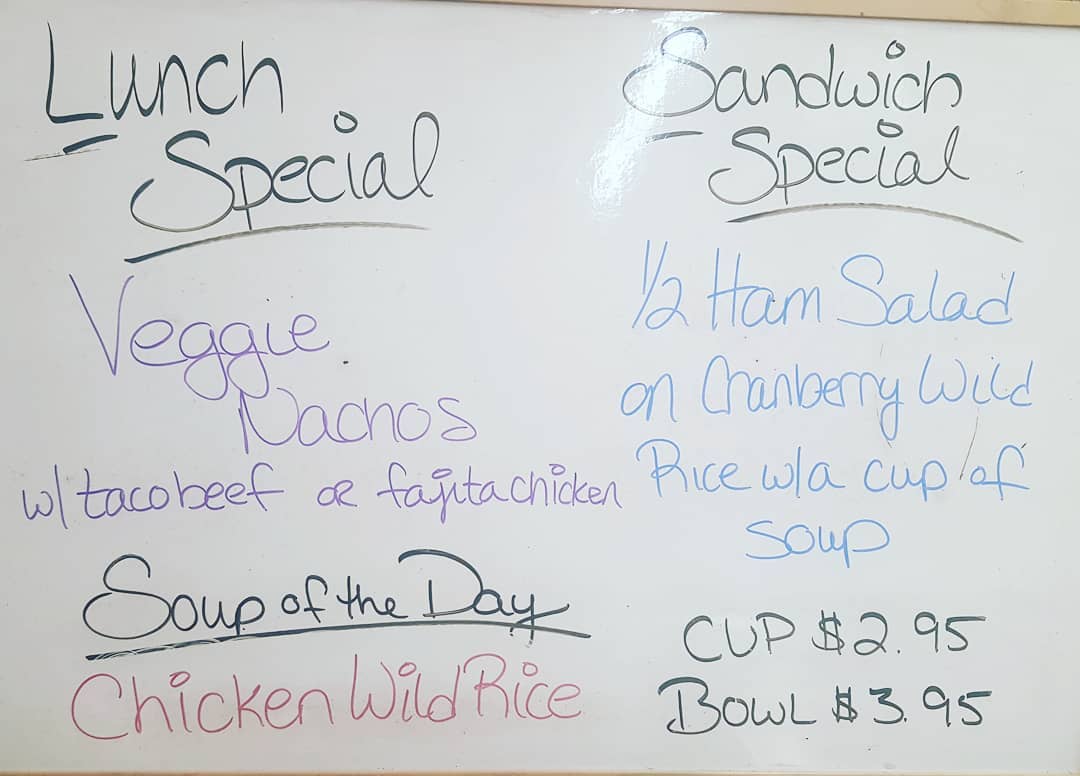 Lunch
Special
Veggie
Nachos
w/ taco beef or fajita chicken
Soup of the Day
Chicken Wild Rice
Sandwich
Special
1/2 Ham Salad
on Cranberry Wild
Rice w/a cup of
soup
CUP $2.95
BOWL $3.95